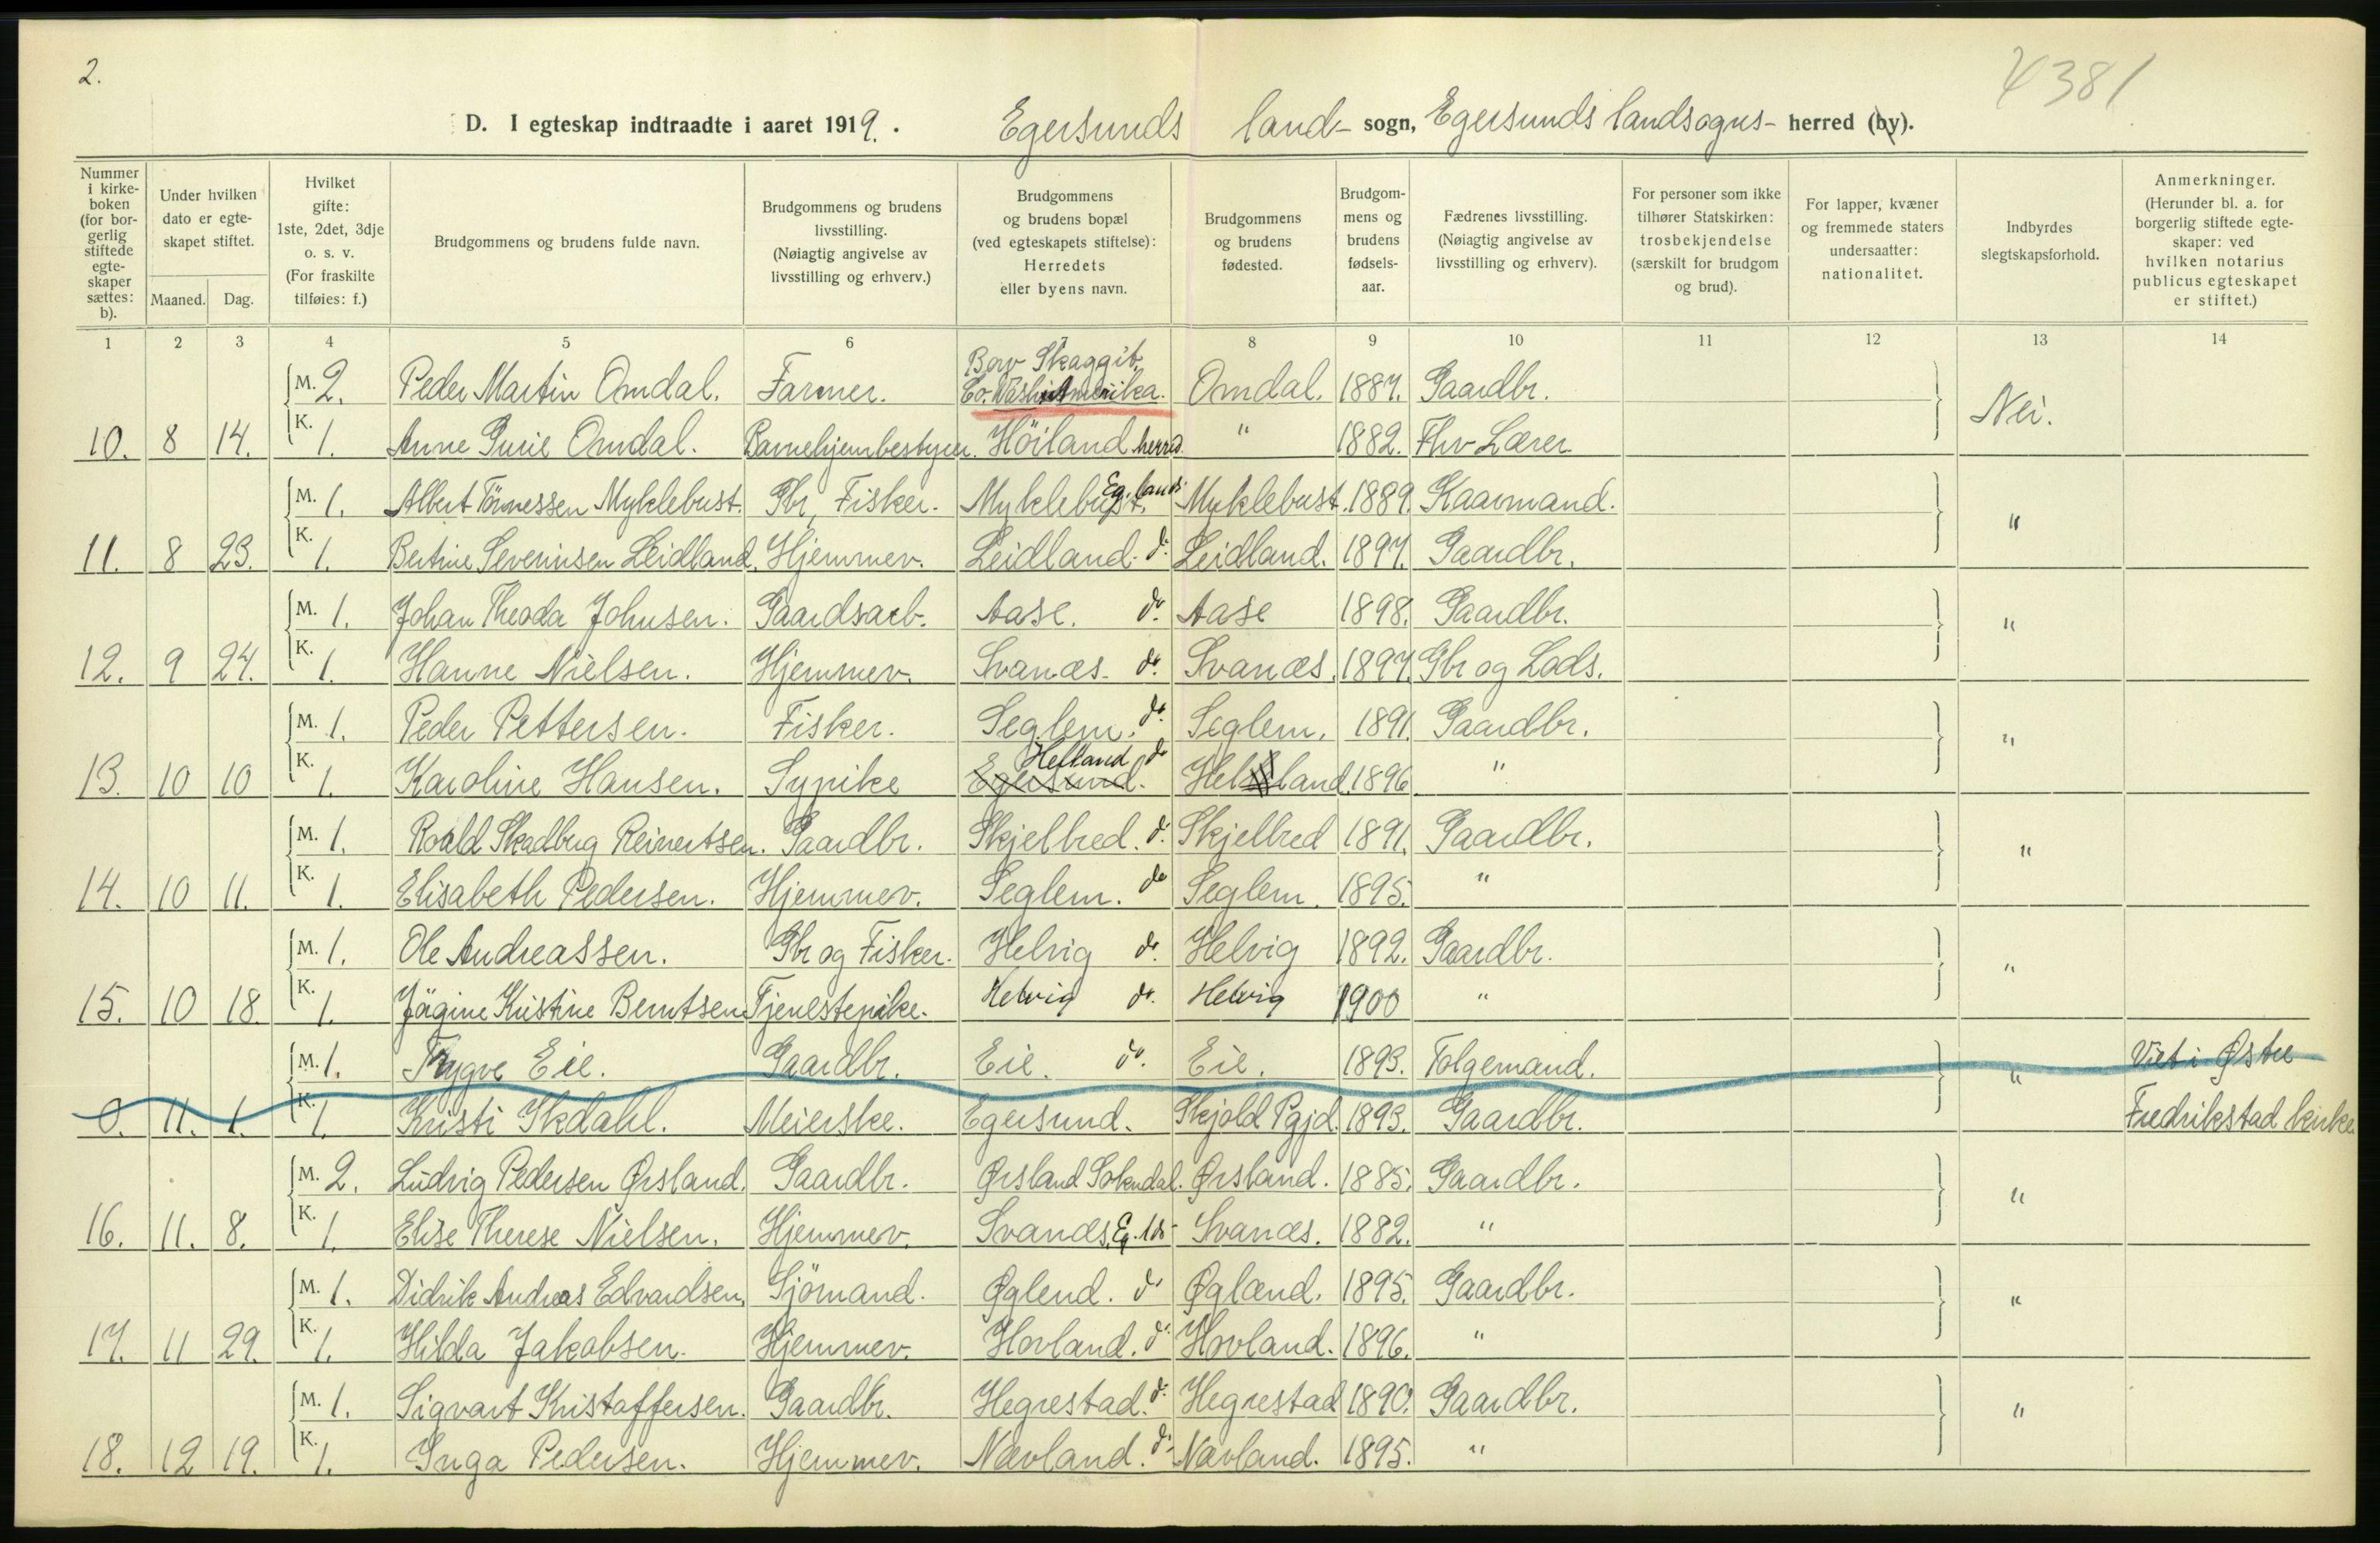 2.
4381
D. I egteskap indtraadte i aaret 1919. Egersunds land- sogn, Egersunds landsogns- herred (by).
Nummer i kirke- boken (for bor- gerlig stiftede egte- skaper sættes: b).
Under hvilken dato er egte- skapet stiftet.
Maaned. Dag.
Hvilket gifte: 1ste, 2det, 3dje o. s. v. (For fraskilte tilføies: f.)
Brudgommens og brudens fulde navn.
Brudgommens og brudens livsstilling. (Nøiagtig angivelse av livsstilling og erhverv.)
Brudgommens og brudens bopæl (ved egteskapets stiftelse): Herredets eller byens navn.
Brudgommens og brudens fødested.
Brudgom- mens og brudens fødsels- aar.
Fædrenes livsstilling. (Nøiagtig angivelse av livsstilling og erhverv).
For personer som ikke tilhører Statskirken: trosbekjendelse (særskilt for brudgom og brud).
For lapper, kvæner og fremmede staters undersaatter: nationalitet.
Indbyrdes slegtskapsforhold.
Anmerkninger. (Herunder bl. a. for borgerlig stiftede egte- skaper: ved hvilken notarius publicus egteskapet er stiftet.)
1 2 3 4 5 6 7 8 9 10 11 12 13 14
M. 2. Peder Martin Omdal. Farmer. Bow Skaggit Co. Wash. Amerika. Omdal. 1887. Gaardbr.
10. 8 14. K. 1. Anne Gurie Omdal. Barnehjembestyrer. Höiland herred. " 1882. Fhv Lærer Nei.
M. 1. Albert Tönnessen Myklebust. Gbr, Fisker. Myklebust. Eg. lands. Myklebust. 1889. Kaarmand.
11. 8 23. K. 1. Bertine Severinsen Leidland. Hjemmev. Leidland. do. Leidland. 1897. Gaardbr. "
M. 1. Johan Theoda Johnsen. Gaardsarb. Aase. do. Aase 1898. Gaardbr.
12. 9 24. K. 1. Hanne Nielsen. Hjemmev. Svanæs. do. Svanæs. 1897. Gbr og Lods. "
M. 1. Peder Pettersen. Fisker. Seglem. do. Seglem. 1891. Gaardbr.
13. 10 10 K. 1. Karoline Hansen. Sypike Egersund. Helland do Helland. 1896 " "
M. 1. Roald Skadberg Reinertsen. Gaardbr. Skjelbred. do. Skjelbred 1891. Gaardbr.
14. 10 11. K. 1. Elisabeth Pedersen. Hjemmev. Seglem. do Seglem. 1895. " "
M. 1. Ole Andreassen. Gbr og Fisker. Helvig do. Helvig 1892. Gaardbr.
15. 10 18. K. 1. Jögine Kristine Berntsen Tjenestepike. Helvig do. Helvig 1900 " "
M. 1. Trygve Eie. Gaardbr. Eie. do. Eie. 1893. Folgemand. Viet i Østre
0. 11. 1. K. 1. Kristi Skdahl. Meierske. Egersund. Skjold Pgjd. 1893. Gaardbr. " Fredrikstad kirke
M. 2. Ludvig Pedersen Ørsland. Gaardbr. Ørsland Sokndal. Ørsland. 1885. Gaardbr.
16. 11. 8. K. 1. Elise Therese Nielsen. Hjemmev. Svanæs. Eg. lds. Svanæs. 1882. " "
M. 1. Didrik Andreas Edvardsen. Sjömand. Øglend. do Øglænd. 1895. Gaardbr.
17. 11 29. K. 1. Hilda Jakobsen. Hjemmev. Hovland. do. Hovland. 1896. " "
M. 1. Sigvart Kristoffersen. Gaardbr. Hegrestad. do. Hegrestad 1890. Gaardbr.
18. 12 19. K. 1. Inga Pedersen. Hjemmev. Nævland. do. Nævland. 1895. " "